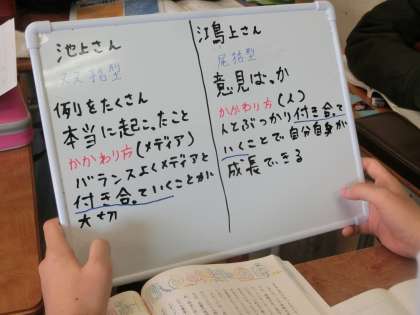 池上さん
例をたくさん
本当に起こったこと
かかわり方(メディア)
バランスよくメディアと
付き合っていくことが
大切
鴻上さん
尾括型
意見は、か
かかわり方(人)
人とぶつかり付き合って
いくことで自分自身が
成長できる